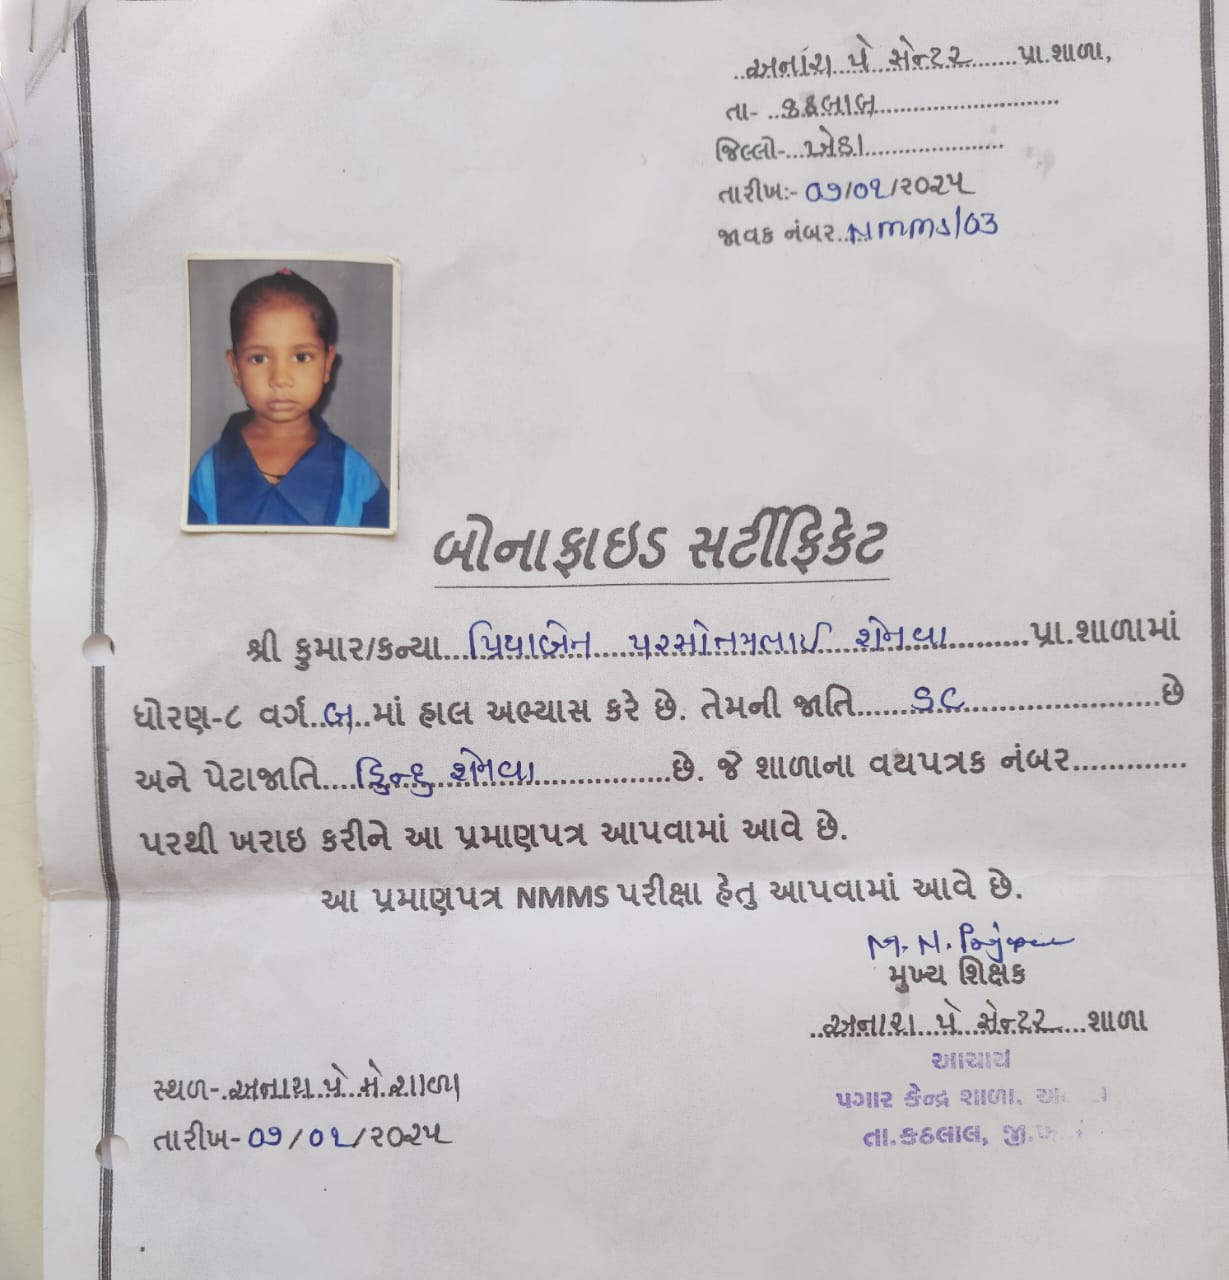 અનારા પે સેન્ટર પ્રા.શાળા,
તા- કઠલાલ
જિલ્લો- ખેડા
તારીખ:- ૦૭/૦૧/૨૦૨૫
જાવક નંબર NMMS/03
બોનાફાઇડ સર્ટીફિકેટ
શ્રી કુમાર/કન્યા પ્રિયાબેન પરસોતમભાઈ શેનવા પ્રા.શાળામાં
ધોરણ-૮ વર્ગ બ માં હાલ અભ્યાસ કરે છે. તેમની જાતિ SC છે
અને પેટાજાતિ હિન્દુ શેનવા છે. જે શાળાના વયપત્રક નંબર
પરથી ખરાઇ કરીને આ પ્રમાણપત્ર આપવામાં આવે છે.
આ પ્રમાણપત્ર NMMS પરીક્ષા હેતુ આપવામાં આવે છે.
M. N.
મુખ્ય શિક્ષક
અનારા પે સેન્ટર શાળા
આચાર્ય
પગાર કેન્દ્ર શાળા,
તા.કઠલાલ, જી.
સ્થળ- અનારા પે સે શાળા
તારીખ- ૦૭/૦૧/૨૦૨૫